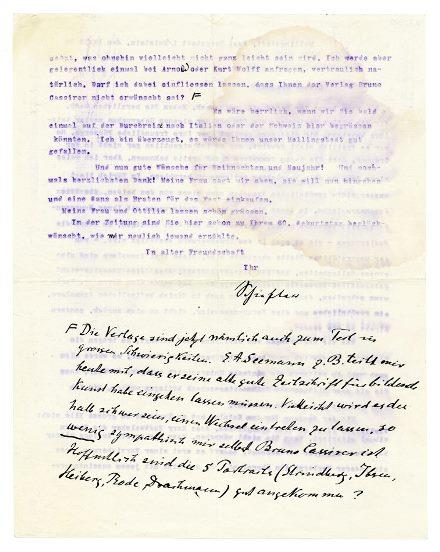 geht, was ohnehin vielleicht nicht ganz leicht sein wird. Ich werde aber
gelegentlich einmal bei Arnold oder Kurt Wolff anfragen, vertraulich na-
türlich. Darf ich dabei einfliessen lassen, dass Ihnen der Verlag Bruno
Cassirer nicht erwünscht sei? F
Es wäre herrlich, wenn wir Sie bald
einmal auf der Durchreise nach Italien oder der Schweiz hier begrüssen
könnten. Ich bin überzeugt, es würde Ihnen unser Mellingstedt gut
gefallen.
Und nun gute Wünsche für Weihnachten und Neujahr! Und noch-
mals herzlichsten Dank! Meine Frau sagt mir eben, sie will nun hingehen
und eine Gans als Braten für das Fest einkaufen.
Meine Frau und Ottilie lassen schön grüssen.
In der Zeitung sind Sie hier schon zu Ihrem 60. Geburtstag beglück-
wünscht, wie mir neulich jemand erzählte.
In alter Freundschaft
Ihr
F Die Verlage sind jetzt nämlich auch zum Teil in
grossen Schwierigkeiten. E.A. Seemann z.B. teilt mir
heute mit, dass er seine alte gute Zeitschrift für bildende
Kunst habe eingehen lassen müssen. Vielleicht wird es des-
halb schwer sein, einen Wechsel eintreten zu lassen, so
wenig sympathisch mir selbst Bruno Cassirer ist
Hoffentlich sind die 5 Portraits (Strindberg, Ibsen,
Heiberg, Rode Drachmann) gut angekommen?